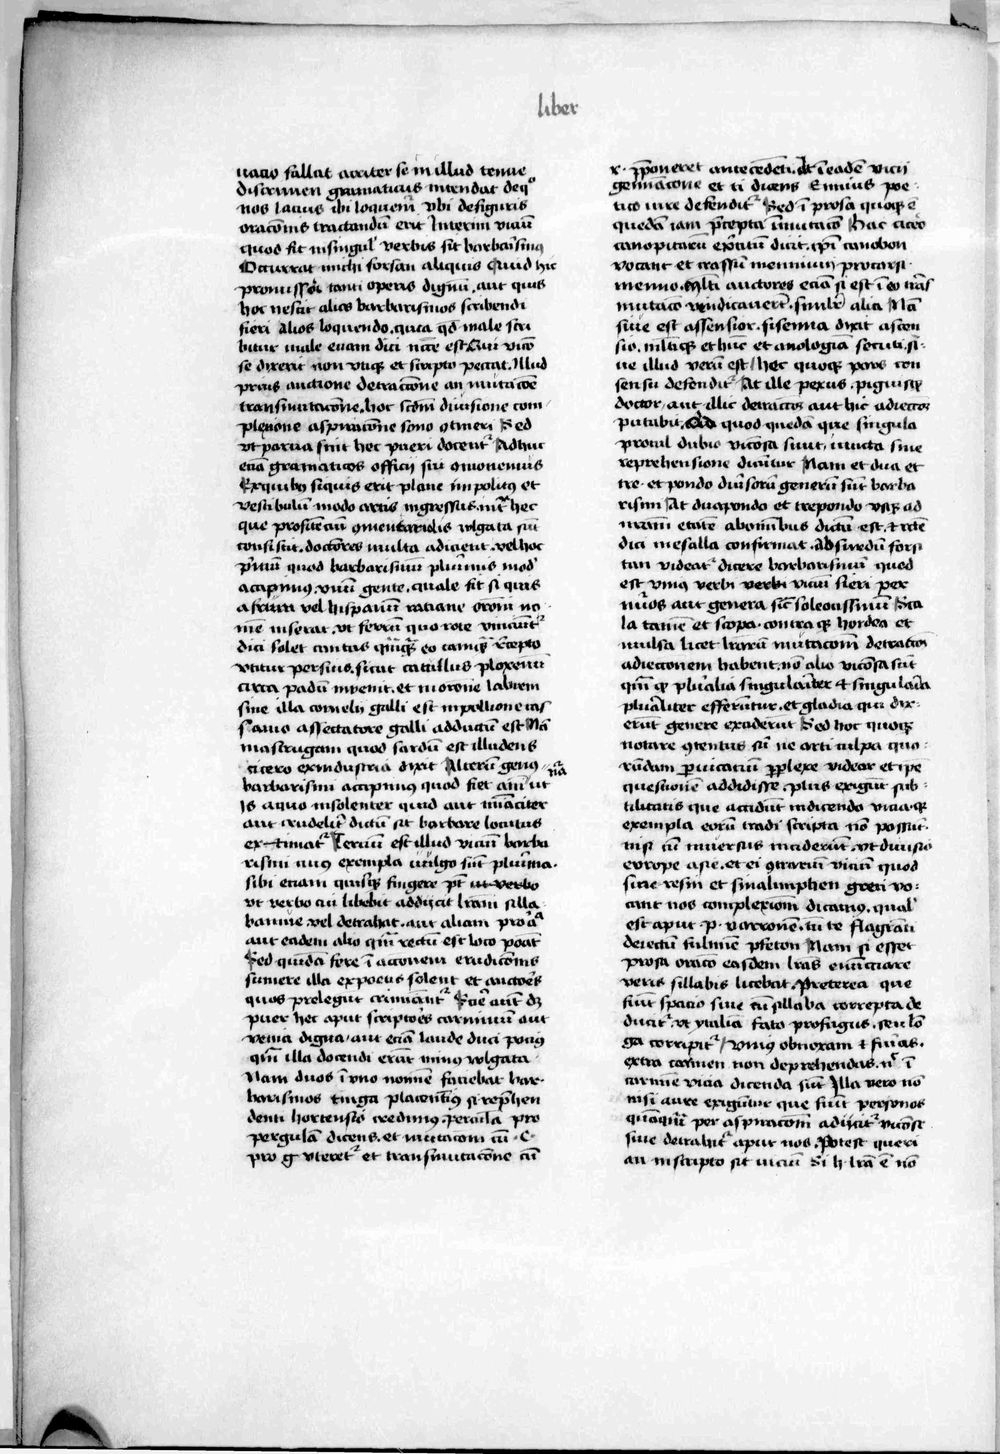 liber
uatio fallat acriter se in illud tenue
discrimen gramaticus intendat de quo
nos lacius ibi loquemur vbi de figuris
oracionis tractandū erit Interim vicium
quod fit in singul' verbis sit barbarismus
Occurrat michi forsan aliquis Quid hic
promissōi tanti operis dignū, aut quis
hoc nescit alios barbarismos scribendi
fieri Alios loquendo, quia qd male scri
bitur male eciam dici necē est Qui vicō
se dixerit non vtiqȝ et scripto peccat, Illud
prius audicione detraccione an mutacōe
transmutacōne, hoc scdm diuisione com
plexione aspiracōne sono ɔtineri Sed
vt parua sint hec pueri docentʳ Adhuc
eciā gramaticos officii sui ɔmonemus
Ex quibȝ siquis erit plane impolitus et
vestibulū modo artis ingressus, intʳ hec
que profitēciū ɔmentariolis vulgata sūt
consistit, doctōres multa adicient, vel hoc
pʳmum quod barbarismum pluribus modˢ
accipimus, vnū gente, quale fit si quis
afrum vel hispanum racione oroni no
mē inserat, vt ferrum quo rote vinciuntʳ
dici solet cantus
vtitur persius, sicut catullus ploxenū
circa padū inuenit, et in oracōe labieni
siue illa cornelii galli est in pollione cas
samo assectatore galli adductū est Nā
mastrugam quod sardū est illudens
cicero ex industria dixit Alterū genus nr̄a
barbarismi accipimus quod fiet animi vt
Is a quo insolenter quid aut minaciter
aut crudeliter dictū sit barbare locutus
existimatʳ Terciū est illud viciū barba
rismi cuius exempla vulgo sūt plurima.
sibi eciam quisqȝ fingere pt̄ ut verbo
vt verbo cui libebit addiicit lr̄am silla
bamue vel detrahat, aut aliam pro aʳ
aut eadem alio qʳm rectū est loco ponat
Sed quidā fere ī accionem erudicōnis
sumere illa ex poetis solent et auctores
quos prelegūt crimināntʳ Scire autē dȝ
puer hec aput scriptores carminum aut
venia digna, aut eciā laude duci pocius
qʳm illa docendi erāt minus volgata
Nam duos ī vno nomīe faciebat bar
barismos tinga placentiȝ si reprehen
denti hortensio credimus, percula pro
pergula dicens, et mutacōm cū · C ·
pro g vteretʳ et transmutacōne cū
r · pponeret antecedēti, At ī eadē vicii
geminacione et ti dicens Ennius poe
tico iure defenditʳ Sed ī prosa quoqȝ ē
quedā iam pʳcepta īmutacō Nac cicero
canopitarū exercitū dicit, ipī canobon
vocant et trassū mennium pro tarsi
menno, Multi auctores eciā si est ī eo trās
mutacō vindicauerūt, similr̄ alia Nā
siue est assensior, sisenna dixit assen
sio, multiqȝ et hūc et analogiā secuti, si
ue illud verū est, hec quoqȝ pars con
sensu defenditʳ At ille pexus, pinguisqȝ
doctor, aut illic detraccōȝ aut hic adieccōȝ
putabit, quod quedā que singula
procul dubio viciosa sunt, iuncta sine
reprehensione dicūtur Nam et dua et
tre, et pondo diuˢorū generū sūt barba
rismi At duapondo et trepondo vsqȝ ad
nʳam etatē ab omibus dictū est, et recte
dici mesalla confirmat, Absurdū fors
tan videatʳ dicere barbarismum quod
est vnius verbi verbi viciū fieri per
nūos aut genera sic soleocismum Sca
la tamē et scopa, contra qȝ hordea et
mulsa licet lr̄arū mutacōm detraccōȝ
adieccionem habent, nō alio viciosa sūt
qʳm qȝ pluralia singulariter et singularia
pluraliter efferuntur, et gladia qui dix
erūt genere exciderūt Sed hoc quoqȝ
notare ɔtentus sū ne arti culpa quo
rūdam pʳuicaciū pplexe videor et ipē
questionē addidisse, plus exigūt sub
tilitatis que accidūt in dicendo vicia, qȝ
exempla eorū tradi scripta nō possūt,
nisi cū in versus inciderūt, vt diuisio
europe asie, et ei ɔtrariū viciū quod
sinēresin et sinalimphen greci vo
cant nos complexionē dicamus, qual'
est aput · p · varronē, tū te flagrāti
deiectū fulmine phetōn Nam si esset
prosa oracō easdem lr̄as enūciare
veris sillabis licebat, Preterea que
fiūt spacio siue cū sillaba correpta de
ducitʳ, vt ytaliā fato profugus, seu lō
ga corripitʳ, vnius ob noxam et furias,
extra carmen non deprehendas, nʳ ī
carmīe vicia dicenda sūt Illa vero nō
nisi aure exigūtur que fiūt per sonos
quāqʳm per aspiracōm adiicitʳ viciose
siue detrahitʳ aput nos, Potest queri
an in scripto sit viciū Si h lr̄a ē nō